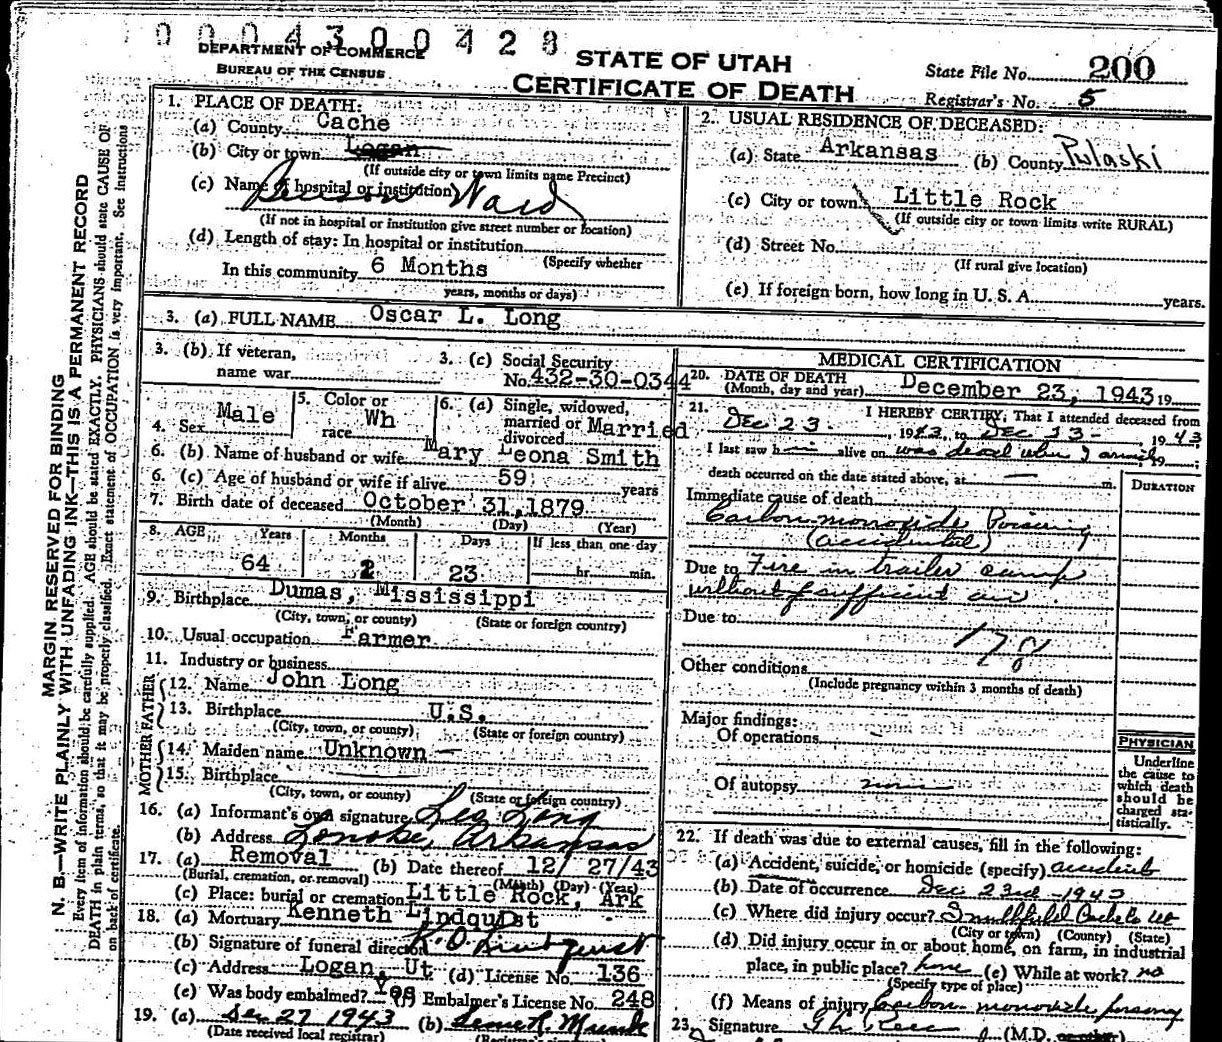 0004300428
DEPARTMENT OF COMMERCE
BUREAU OF THE CENSUS
STATE OF UTAH
CERTIFICATE OF DEATH
State File No. 200
Registrar's No. 5
MARGIN RESERVED FOR BINDING
N. B.—WRITE PLAINLY WITH UNFADING INK—THIS IS A PERMANENT RECORD
Every item of information should be carefully supplied. AGE should be stated EXACTLY. PHYSICIANS should state CAUSE OF
DEATH in plain terms, so that it may be properly classified. Exact statement of OCCUPATION is very important. See instructions
on back of certificate.
1. PLACE OF DEATH:
(a) County Cache
(b) City or town Logan
(If outside city or town limits name Precinct)
(c) Name of hospital or institution Benson Ward
(If not in hospital or institution give street number or location)
(d) Length of stay: In hospital or institution
(Specify whether
In this community 6 Months
years, months or days)
2. USUAL RESIDENCE OF DECEASED:
(a) State Arkansas (b) County Pulaski
(c) City or town Little Rock
(If outside city or town limits write RURAL)
(d) Street No.
(If rural give location)
(e) If foreign born, how long in U. S. A. years.
3. (a) FULL NAME Oscar L. Long
3. (b) If veteran,
name war
3. (c) Social Security
No. 432-30-0344
4. Sex Male
5. Color or
race Wh
6. (a) Single, widowed,
married or
divorced Married
6. (b) Name of husband or wife Mary Leona Smith
6. (c) Age of husband or wife if alive 59 years
7. Birth date of deceased October 31, 1879
(Month) (Day) (Year)
8. AGE Years Months Days If less than one day
64 2 23 hr. min.
9. Birthplace Dumas, Mississippi
(City, town, or county) (State or foreign country)
10. Usual occupation Farmer
11. Industry or business
FATHER
12. Name John Long
13. Birthplace U.S.
(City, town, or county) (State or foreign country)
MOTHER
14. Maiden name Unknown
15. Birthplace
(City, town, or county) (State or foreign country)
16. (a) Informant's own signature Leo Long
(b) Address Lonoke, Arkansas
17. (a) Removal (b) Date thereof 12/ 27/43
(Burial, cremation, or removal) (Month) (Day) (Year)
(c) Place: burial or cremation Little Rock, Ark
18. (a) Mortuary Kenneth Lindquist
(b) Signature of funeral director K. O. Lindquist
(c) Address Logan, Ut (d) License No. 136
(e) Was body embalmed? Yes (f) Embalmer's License No. 248
19. (a) Dec 27 1943 (b)
(Date received local registrar)
MEDICAL CERTIFICATION
20. DATE OF DEATH
(Month, day and year) December 23, 1943 19
21. I HEREBY CERTIFY, That I attended deceased from
Dec 23 1943, to Dec 23 1943
I last saw him alive on was dead when I arrived 19
death occurred on the date stated above, at m.
DURATION
Immediate cause of death
Carbon monoxide Poisoning
(accidental)
Due to Fire in trailer camp
without sufficient air.
Due to
178
Other conditions
(Include pregnancy within 3 months of death)
Major findings:
Of operations
Of autopsy none
PHYSICIAN
Underline
the cause to
which death
should be
charged sta-
tistically.
22. If death was due to external causes, fill in the following:
(a) Accident, suicide, or homicide (specify) accident
(b) Date of occurrence Dec 23rd - 1943
(c) Where did injury occur? Smithfield Cache Co Ut
(City or town) (County) (State)
(d) Did injury occur in or about home, on farm, in industrial
place, in public place? home (e) While at work? no
(Specify type of place)
(f) Means of injury Carbon monoxide poisoning
23. Signature (M.D. or other)